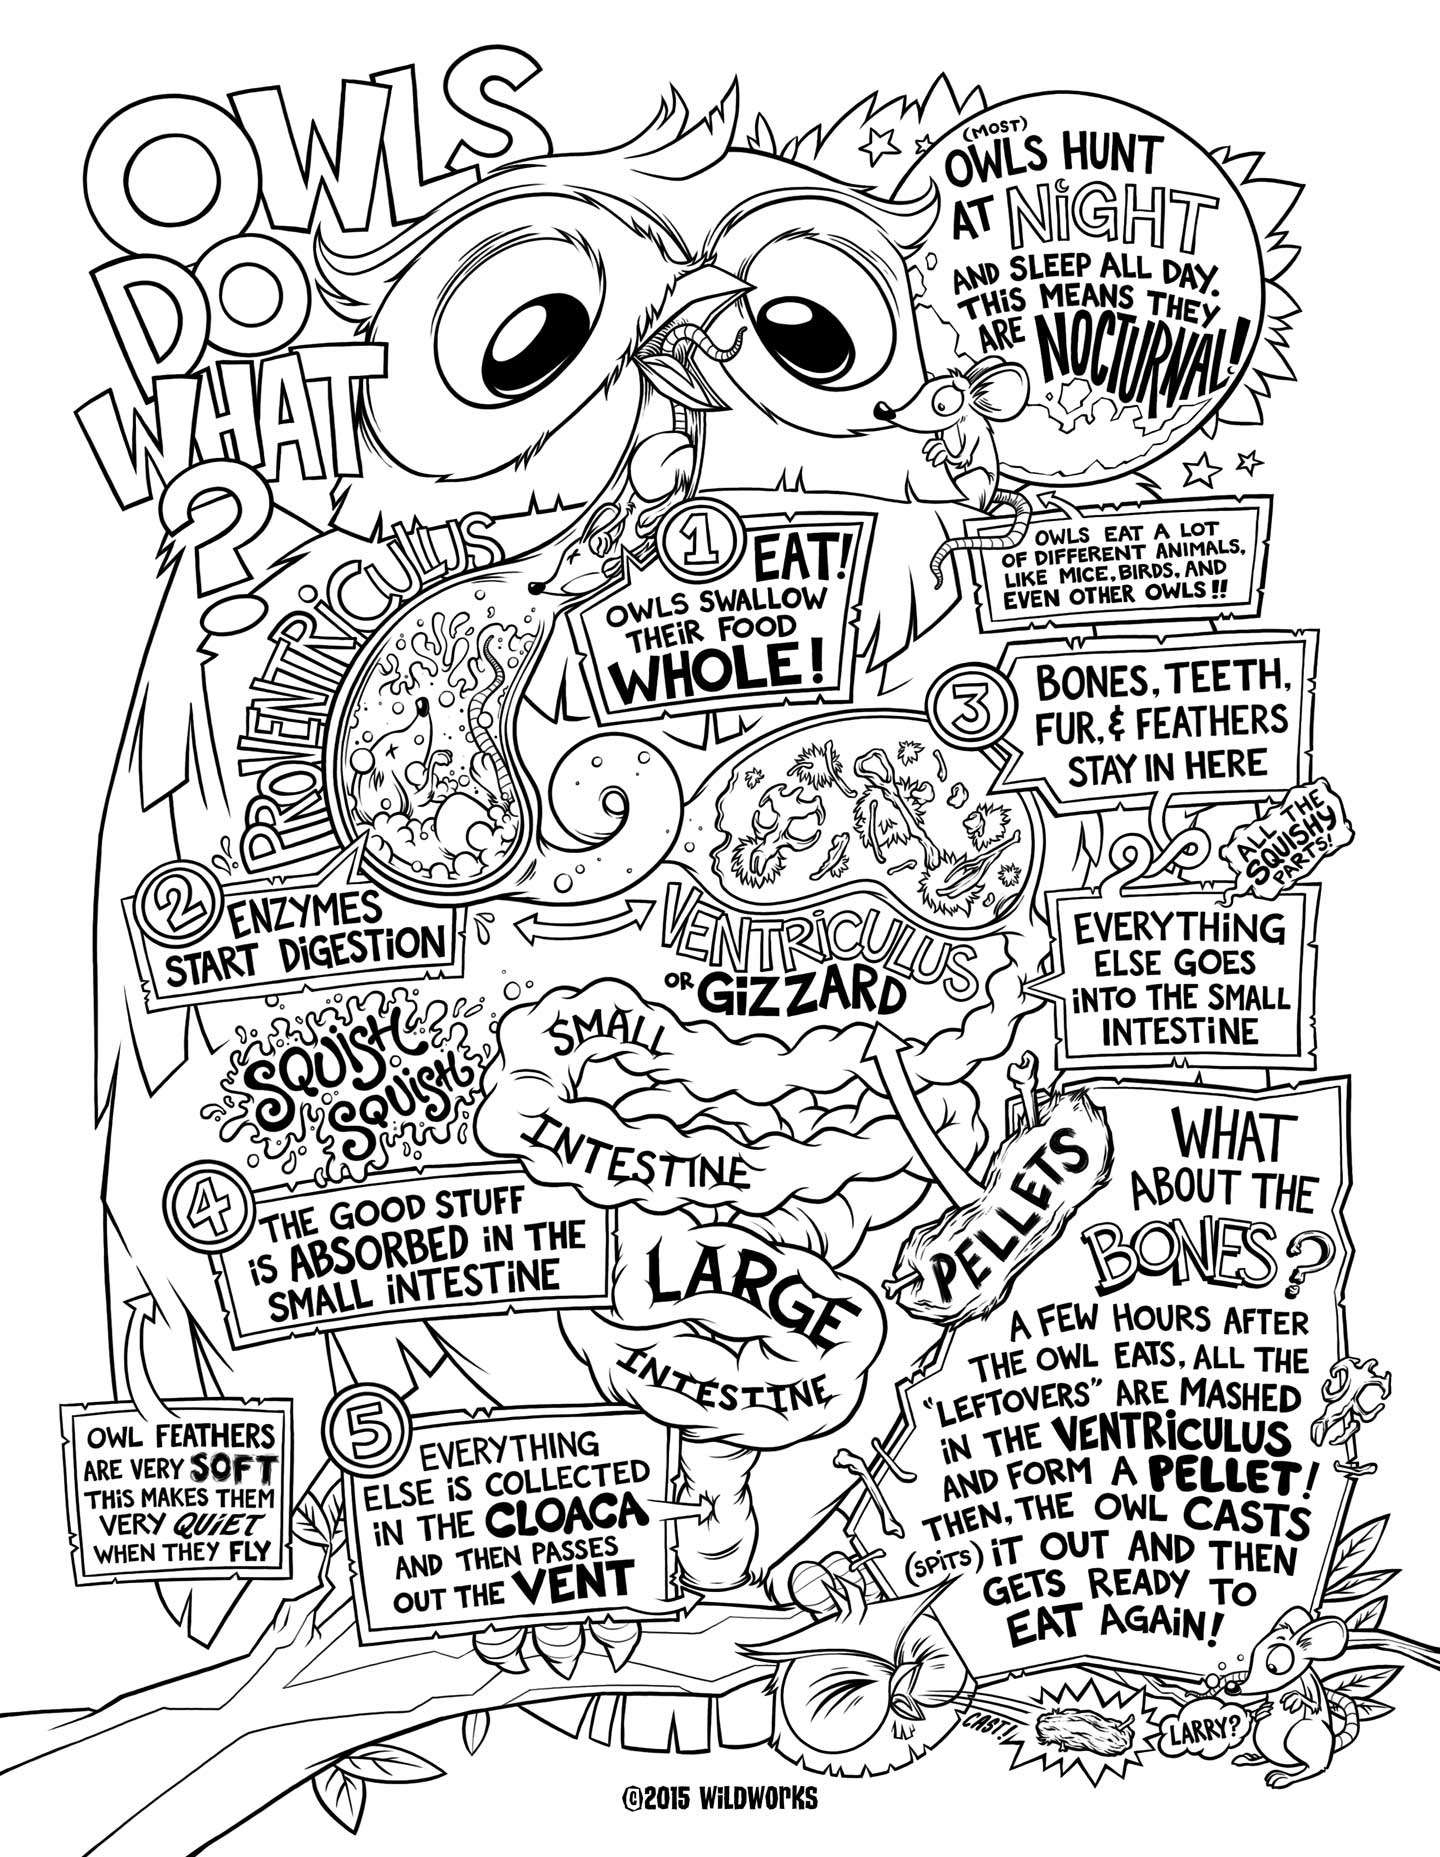 OWLS
DO
WHAT
?
(MOST)
OWLS HUNT
AT NIGHT
AND SLEEP ALL DAY.
THIS MEANS THEY
ARE NOCTURNAL!
OWLS EAT A LOT
OF DIFFERENT ANIMALS,
LIKE MICE, BIRDS, AND
EVEN OTHER OWLS!!
1
EAT!
OWLS SWALLOW
THEIR FOOD
WHOLE!
PROVENTRICULUS
2
ENZYMES
START DIGESTION
3
BONES, TEETH,
FUR, & FEATHERS
STAY IN HERE
ALL THE
SQUISHY
PARTS!
EVERYTHING
ELSE GOES
INTO THE SMALL
INTESTINE
VENTRICULUS
OR GIZZARD
SQUISH
SQUISH
SMALL
INTESTINE
4
THE GOOD STUFF
IS ABSORBED IN THE
SMALL INTESTINE
LARGE
INTESTINE
PELLETS
WHAT
ABOUT THE
BONES?
A FEW HOURS AFTER
THE OWL EATS, ALL THE
"LEFTOVERS" ARE MASHED
IN THE VENTRICULUS
AND FORM A PELLET!
THEN, THE OWL CASTS
(SPITS) IT OUT AND THEN
GETS READY TO
EAT AGAIN!
OWL FEATHERS
ARE VERY SOFT
THIS MAKES THEM
VERY QUIET
WHEN THEY FLY
5
EVERYTHING
ELSE IS COLLECTED
IN THE CLOACA
AND THEN PASSES
OUT THE VENT
CAST!
LARRY?
©2015 WILDWORKS